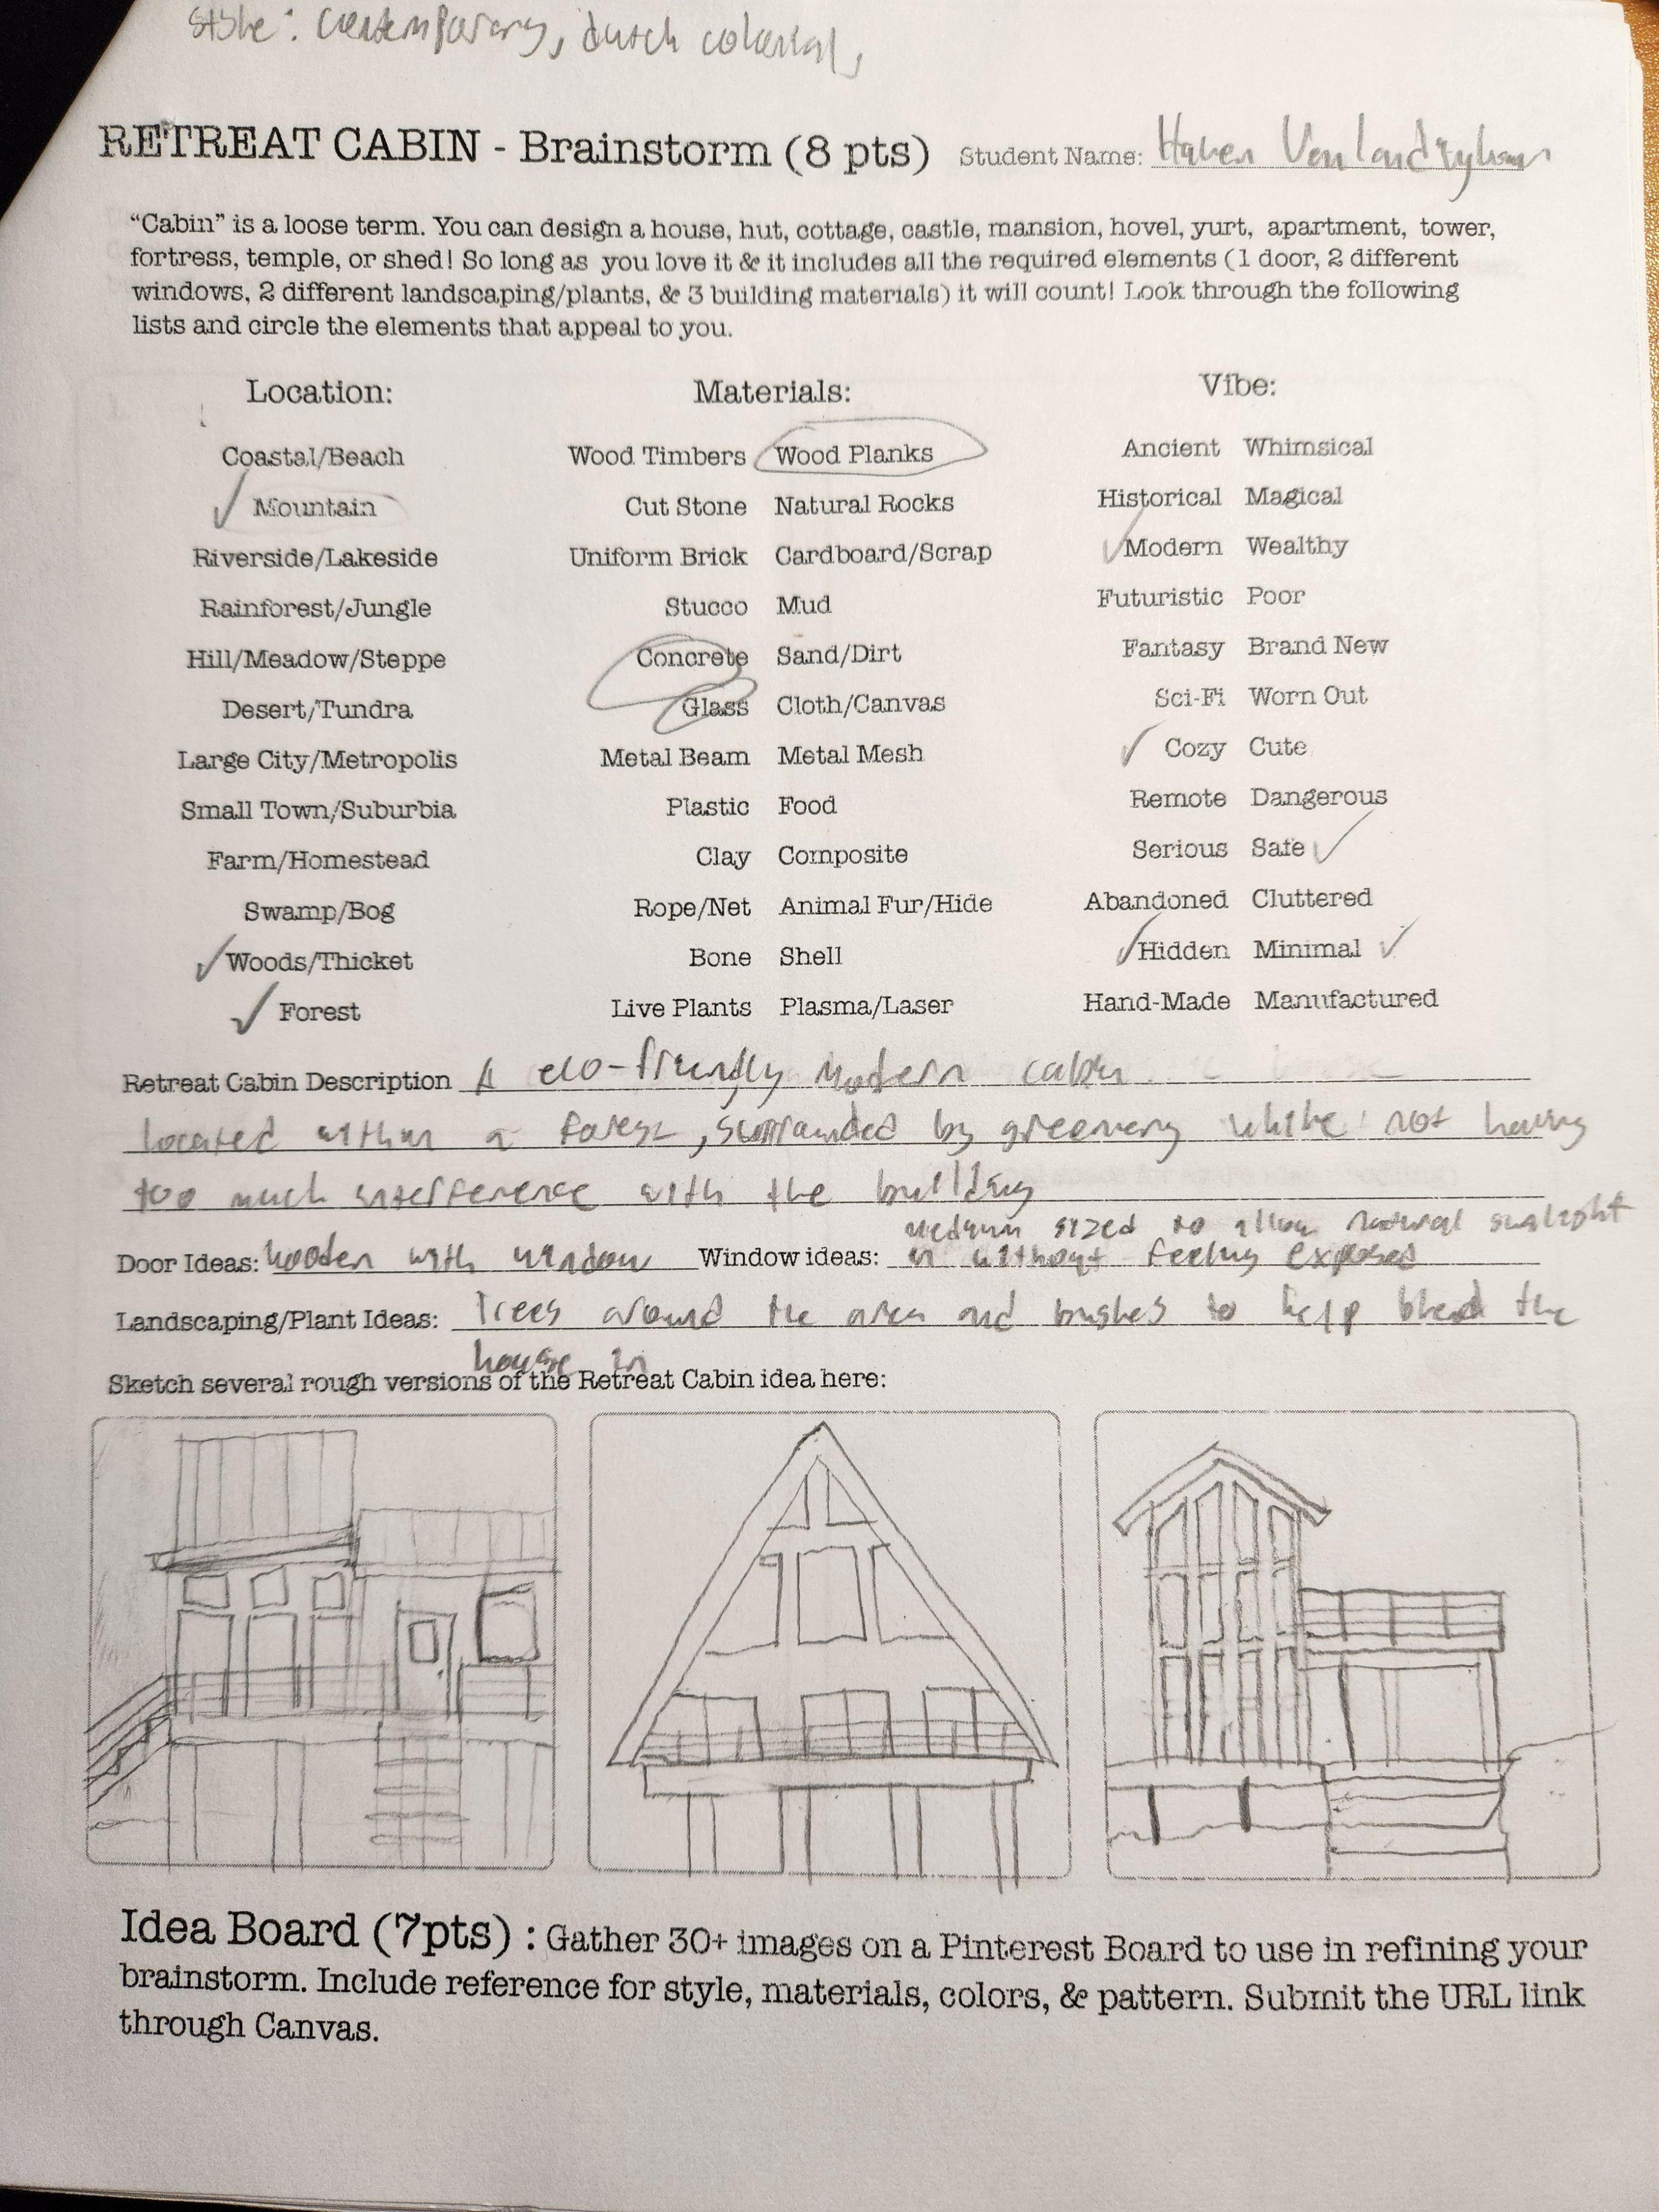 style: contemporary, dutch colonial,
RETREAT CABIN - Brainstorm (8 pts) Student Name: Haven
“Cabin” is a loose term. You can design a house, hut, cottage, castle, mansion, hovel, yurt, apartment, tower,
fortress, temple, or shed! So long as you love it & it includes all the required elements (1 door, 2 different
windows, 2 different landscaping/plants, & 3 building materials) it will count! Look through the following
lists and circle the elements that appeal to you.
Location: Materials: Vibe:
Coastal/Beach Wood Timbers Wood Planks Ancient Whimsical
Mountain Cut Stone Natural Rocks Historical Magical
Riverside/Lakeside Uniform Brick Cardboard/Scrap Modern Wealthy
Rainforest/Jungle Stucco Mud Futuristic Poor
Hill/Meadow/Steppe Concrete Sand/Dirt Fantasy Brand New
Desert/Tundra Glass Cloth/Canvas Sci-Fi Worn Out
Large City/Metropolis Metal Beam Metal Mesh Cozy Cute
Small Town/Suburbia Plastic Food Remote Dangerous
Farm/Homestead Clay Composite Serious Safe
Swamp/Bog Rope/Net Animal Fur/Hide Abandoned Cluttered
Woods/Thicket Bone Shell Hidden Minimal
Forest Live Plants Plasma/Laser Hand-Made Manufactured
Retreat Cabin Description A eco-friendly modern cabin
located within a forest, surrounded by greenery while not having
too much interference with the building
medium sized to allow natural sunlight
Door Ideas: wooden with window Window ideas: in without feeling exposed
Landscaping/Plant Ideas: Trees around the area and bushes to help blend the
house in
Sketch several rough versions of the Retreat Cabin idea here:
Idea Board (7pts) : Gather 30+ images on a Pinterest Board to use in refining your
brainstorm. Include reference for style, materials, colors, & pattern. Submit the URL link
through Canvas.